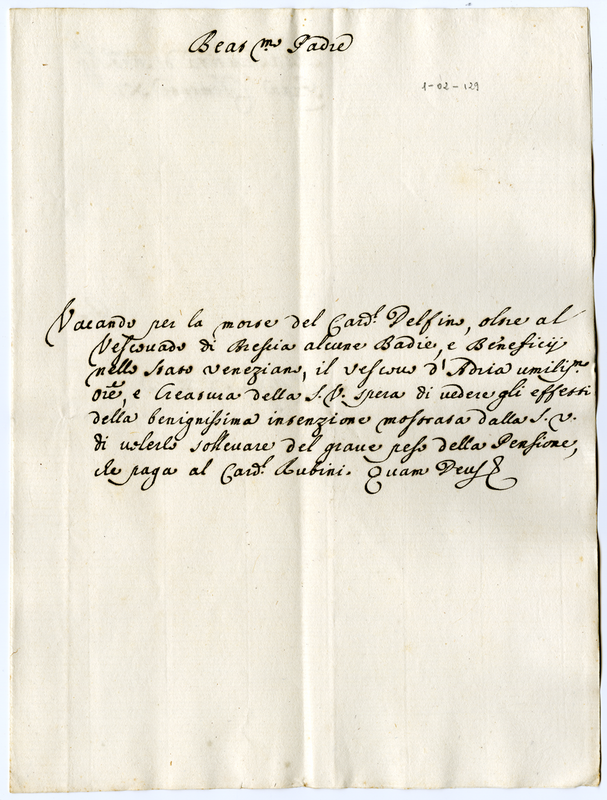 Beat.mo Padre
1-02-129
Vacando per la morte del Card.l Delfino, oltre al
Vescovado di Brescia alcune Badie, e Beneficij
nello Stato Veneziano, il vescovo d'Adria umiliss.mo
Ore, e Creatura della S. V. spera di vedere gli effetti
della benignissima intenzione mostrata dalla S. V.
di volerlo sollevare del grave peso della Pensione,
che paga al Card.l Rubini. Quam Deus &